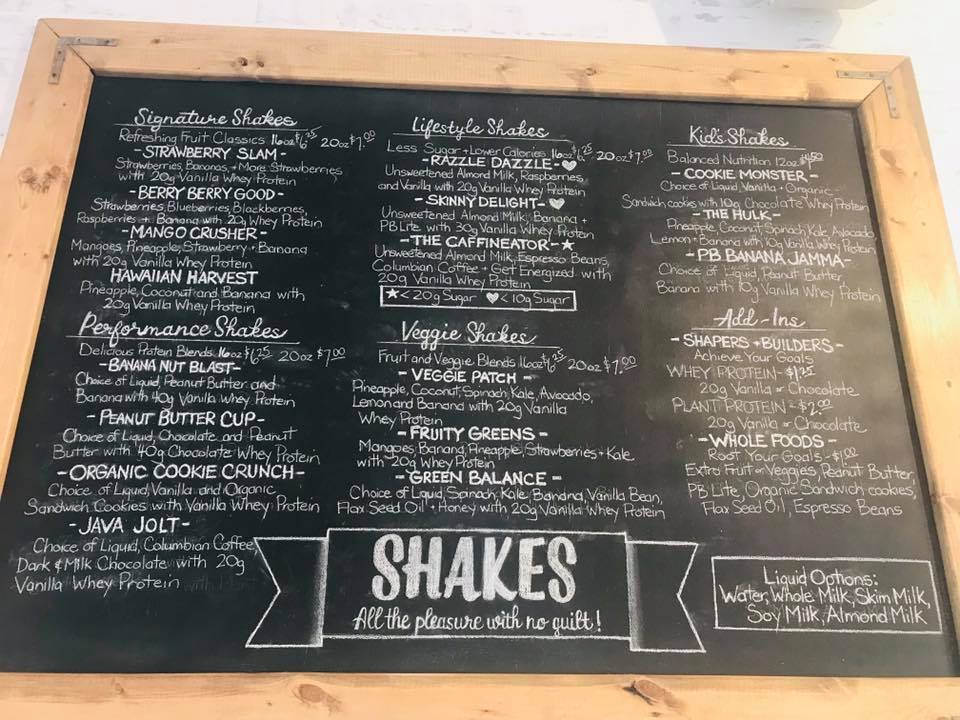 Signature Shakes
Refreshing Fruit Classics 16oz $6.25 20oz $7.00
-STRAWBERRY SLAM-
Strawberries, Bananas, + More Strawberries
with 20g Vanilla Whey Protein
-BERRY BERRY GOOD-
Strawberries, Blueberries, Blackberries,
Raspberries + Banana with 20g Whey Protein
-MANGO CRUSHER-
Mangoes, Pineapple, Strawberry + Banana
with 20g Vanilla Whey Protein
HAWAIIAN HARVEST
Pineapple, Coconut and Banana with
20g Vanilla Whey Protein
Performance Shakes
Delicious Protein Blends 16oz $6.25 20oz $7.00
-BANANA NUT BLAST-
Choice of Liquid, Peanut Butter and
Banana with 40g Vanilla Whey Protein
-PEANUT BUTTER CUP-
Choice of Liquid, Chocolate and Peanut
Butter with 40g Chocolate Whey Protein
-ORGANIC COOKIE CRUNCH-
Choice of Liquid, Vanilla and Organic
Sandwich Cookies with Vanilla Whey Protein
-JAVA JOLT-
Choice of Liquid, Columbian Coffee,
Dark & Milk Chocolate with 20g
Vanilla Whey Protein
Lifestyle Shakes
Less Sugar + Lower Calories 16oz $6.25 20oz $7.00
-RAZZLE DAZZLE-♥
Unsweetened Almond Milk, Raspberries,
and Vanilla with 20g Vanilla Whey Protein
-SKINNY DELIGHT-♥
Unsweetened Almond Milk, Banana +
PB Lite with 30g Vanilla Whey Protein
-THE CAFFINEATOR-★
Unsweetened Almond Milk, Espresso Beans,
Columbian Coffee + Get Energized with
20g Vanilla Whey Protein
★<20g Sugar ♥<10g Sugar
Veggie Shakes
Fruit and Veggie Blends 16oz $6.25 20oz $7.00
-VEGGIE PATCH-
Pineapple, Coconut, Spinach, Kale, Avocado,
Lemon and Banana with 20g Vanilla
Whey Protein
-FRUITY GREENS-
Mangoes, Banana, Pineapple, Strawberries + Kale
with 20g Whey Protein
-GREEN BALANCE-
Choice of Liquid, Spinach, Kale, Banana, Vanilla Bean,
Flax Seed Oil + Honey with 20g Vanilla Whey Protein
Kid's Shakes
Balanced Nutrition 12oz $4.50
-COOKIE MONSTER-
Choice of Liquid, Vanilla + Organic
Sandwich cookies with 10g Chocolate Whey Protein
-THE HULK-
Pineapple, Coconut, Spinach, Kale, Avocado
Lemon + Banana with 10g Vanilla Whey Protein
-PB BANANA JAMMA-
Choice of Liquid, Peanut Butter,
Banana with 10g Vanilla Whey Protein
Add-Ins
-SHAPERS + BUILDERS-
Achieve Your Goals
WHEY PROTEIN- $1.75
20g Vanilla or Chocolate
PLANT PROTEIN - $2.00
20g Vanilla or Chocolate
-WHOLE FOODS-
Root Your Goals - $1.00
Extra Fruit or Veggies, Peanut Butter,
PB Lite, Organic Sandwich cookies,
Flax Seed Oil, Espresso Beans
SHAKES
All the pleasure with no guilt!
Liquid Options:
Water, Whole Milk, Skim Milk,
Soy Milk, Almond Milk